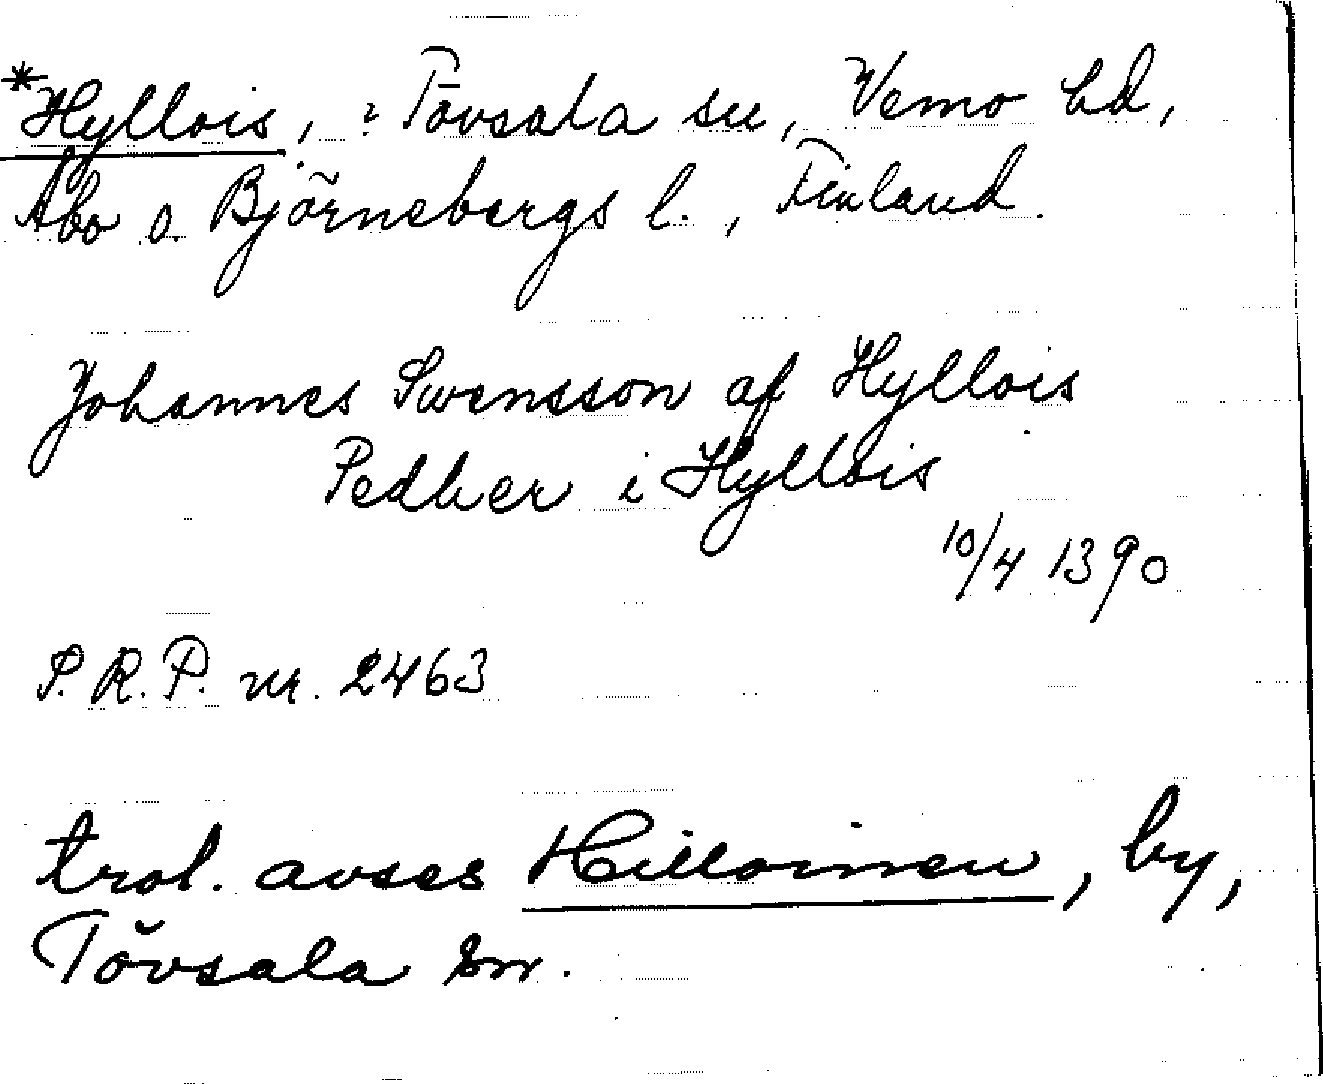 *Hyllois, : Tövsala sn, Vemo hd,
Åbo o. Björnebergs l., Finland.
Johannes Swensson af Hyllois
Pedher i Hyllois
10/4 1390
S.R.P. nr. 2463
trol. avses Hilloinen, by,
Tövsala sn.